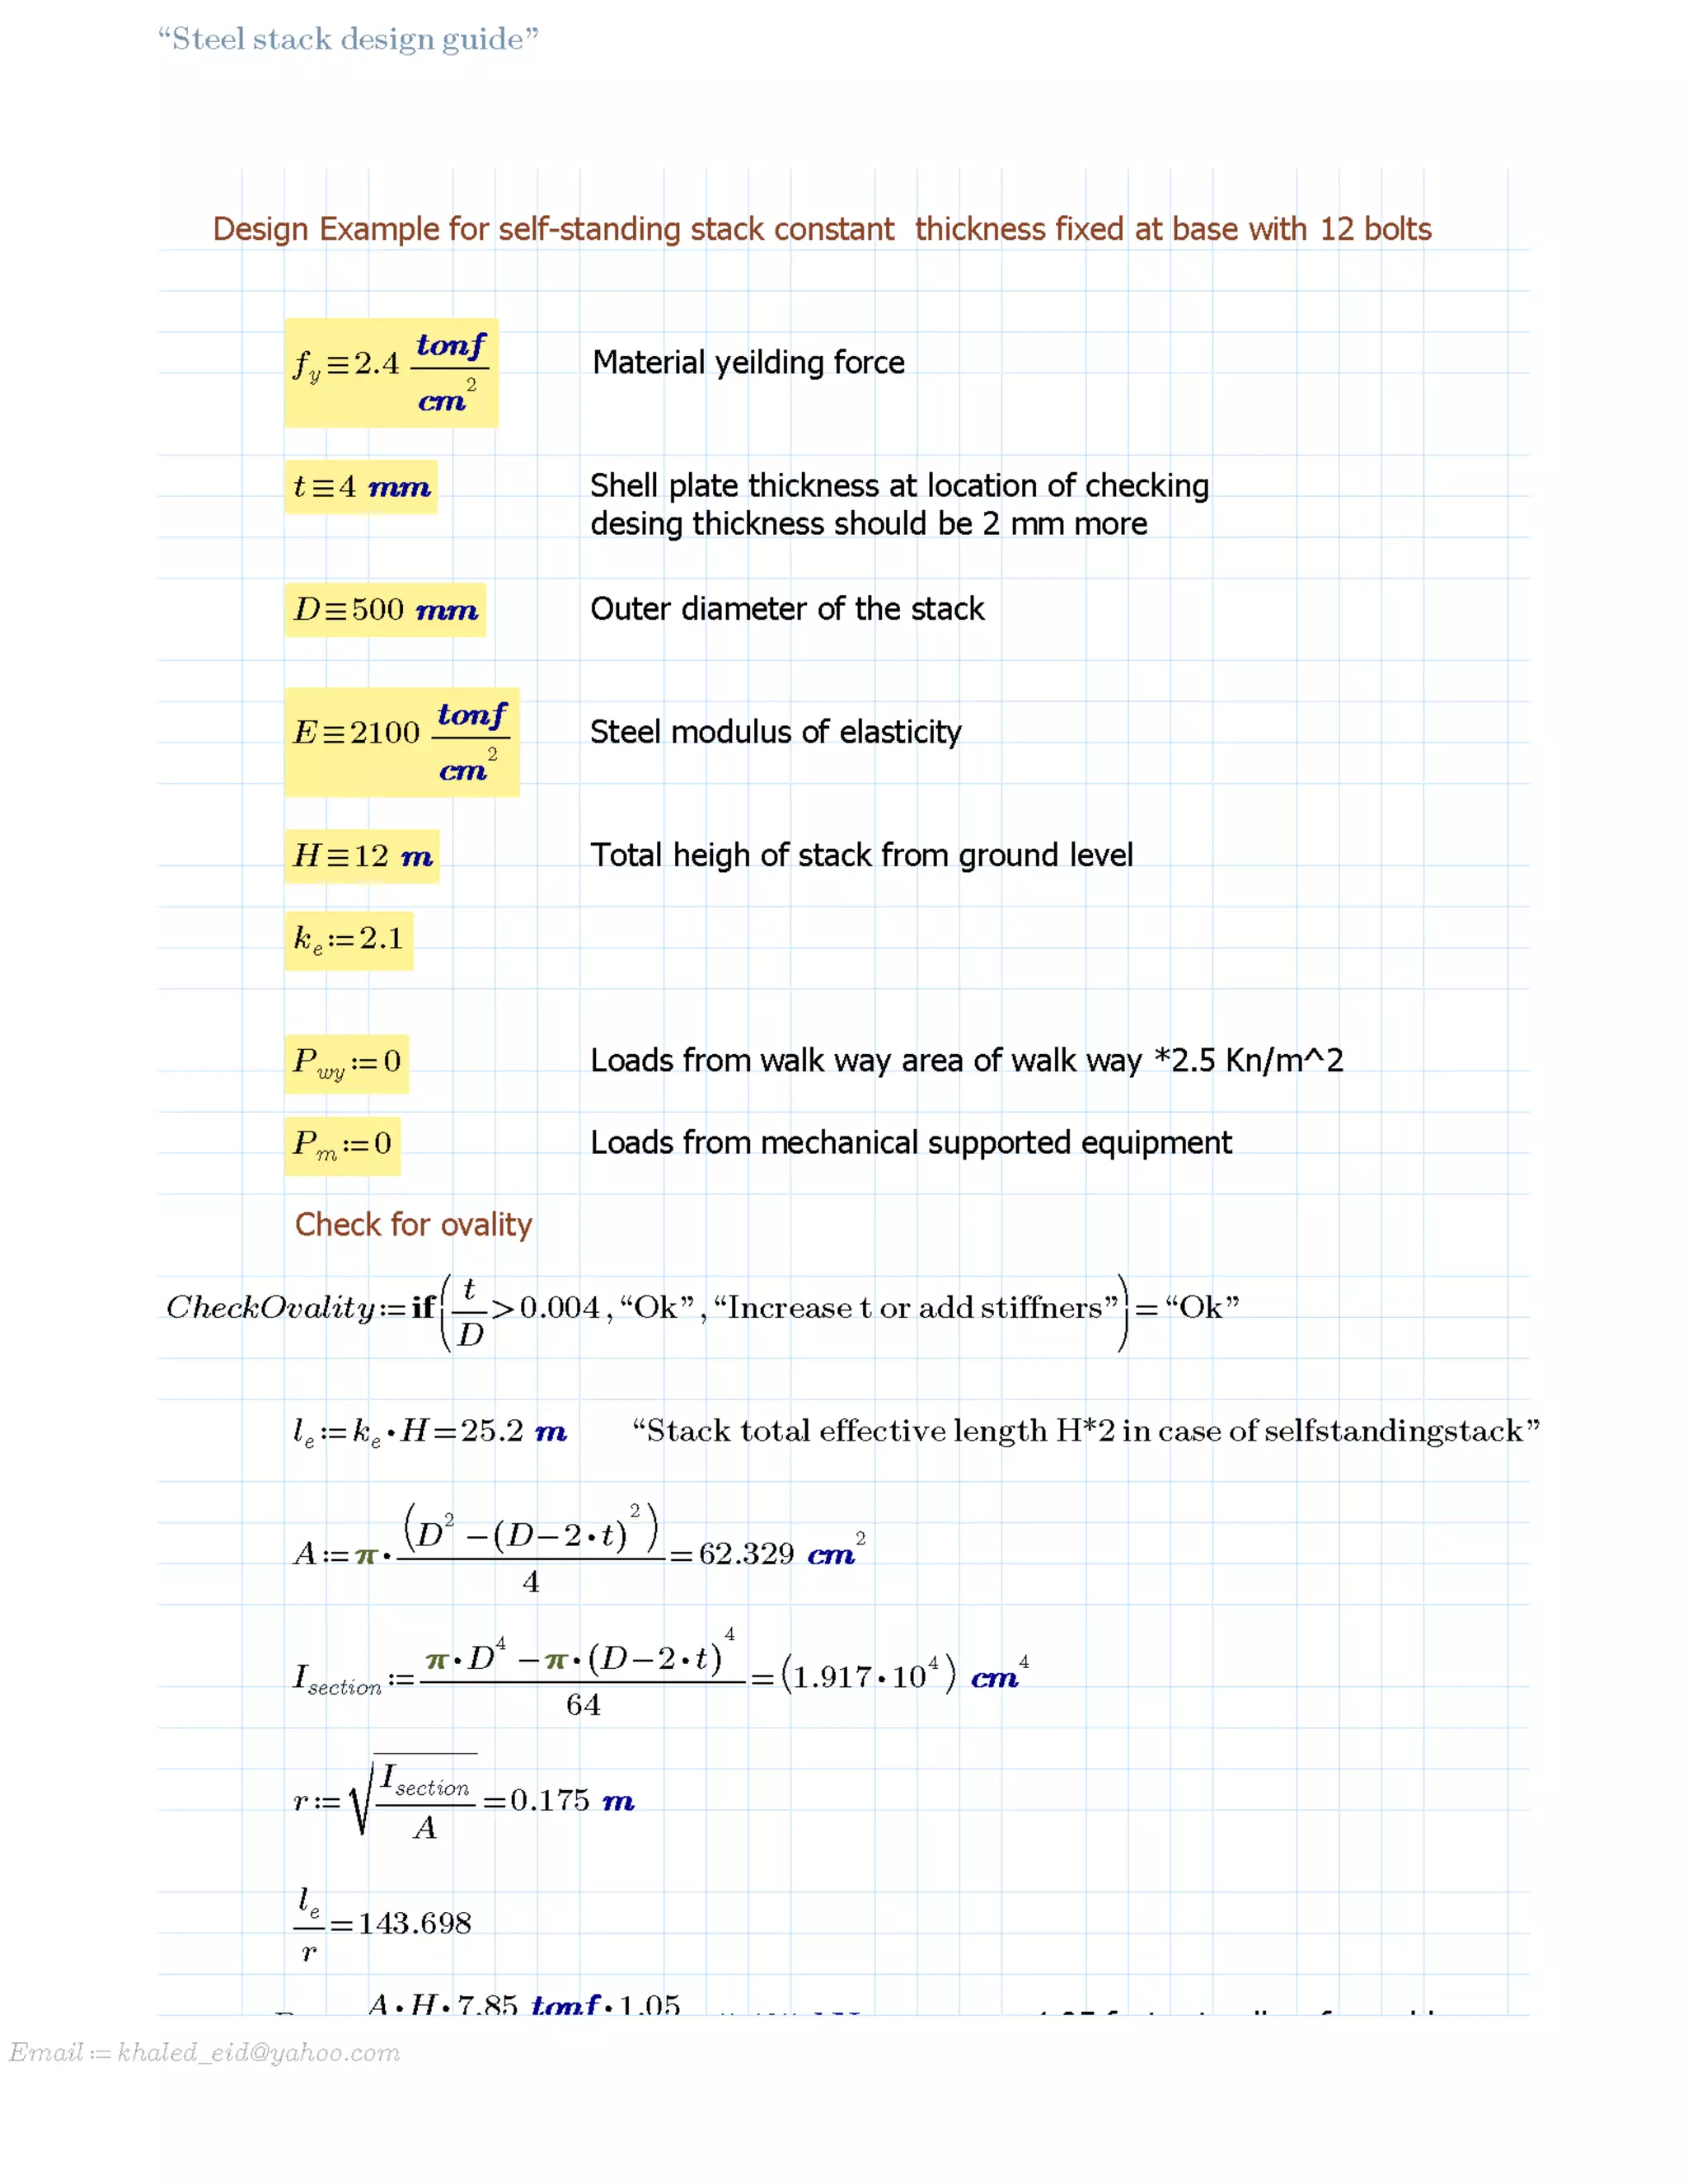 “Steel stack design guide”
Design Example for self-standing stack constant  thickness fixed at base with 12 bolts
f_y≡2.4 tonf/cm^2 Material yeilding force
t≡4 mm Shell plate thickness at location of checking
desing thickness should be 2 mm more
D≡500 mm Outer diameter of the stack
E≡2100 tonf/cm^2 Steel modulus of elasticity
H≡12 m Total heigh of stack from ground level
k_e≔2.1
P_wy≔0 Loads from walk way area of walk way *2.5 Kn/m^2
P_m≔0 Loads from mechanical supported equipment
Check for ovality
CheckOvality≔if(t/D>0.004,“Ok”,“Increase t or add stiffners”)=“Ok”
l_e≔k_e•H=25.2 m “Stack total effective length H*2 in case of selfstandingstack”
A≔π•(D^2−(D−2•t)^2)/4=62.329 cm^2
I_section≔(π•D^4−π•(D−2•t)^4)/64=(1.917•10^4) cm^4
r≔√(I_section/A)=0.175 m
l_e/r=143.698
A•H•7.85 tonf•1.05
Email≔khaled_eid@yahoo.com